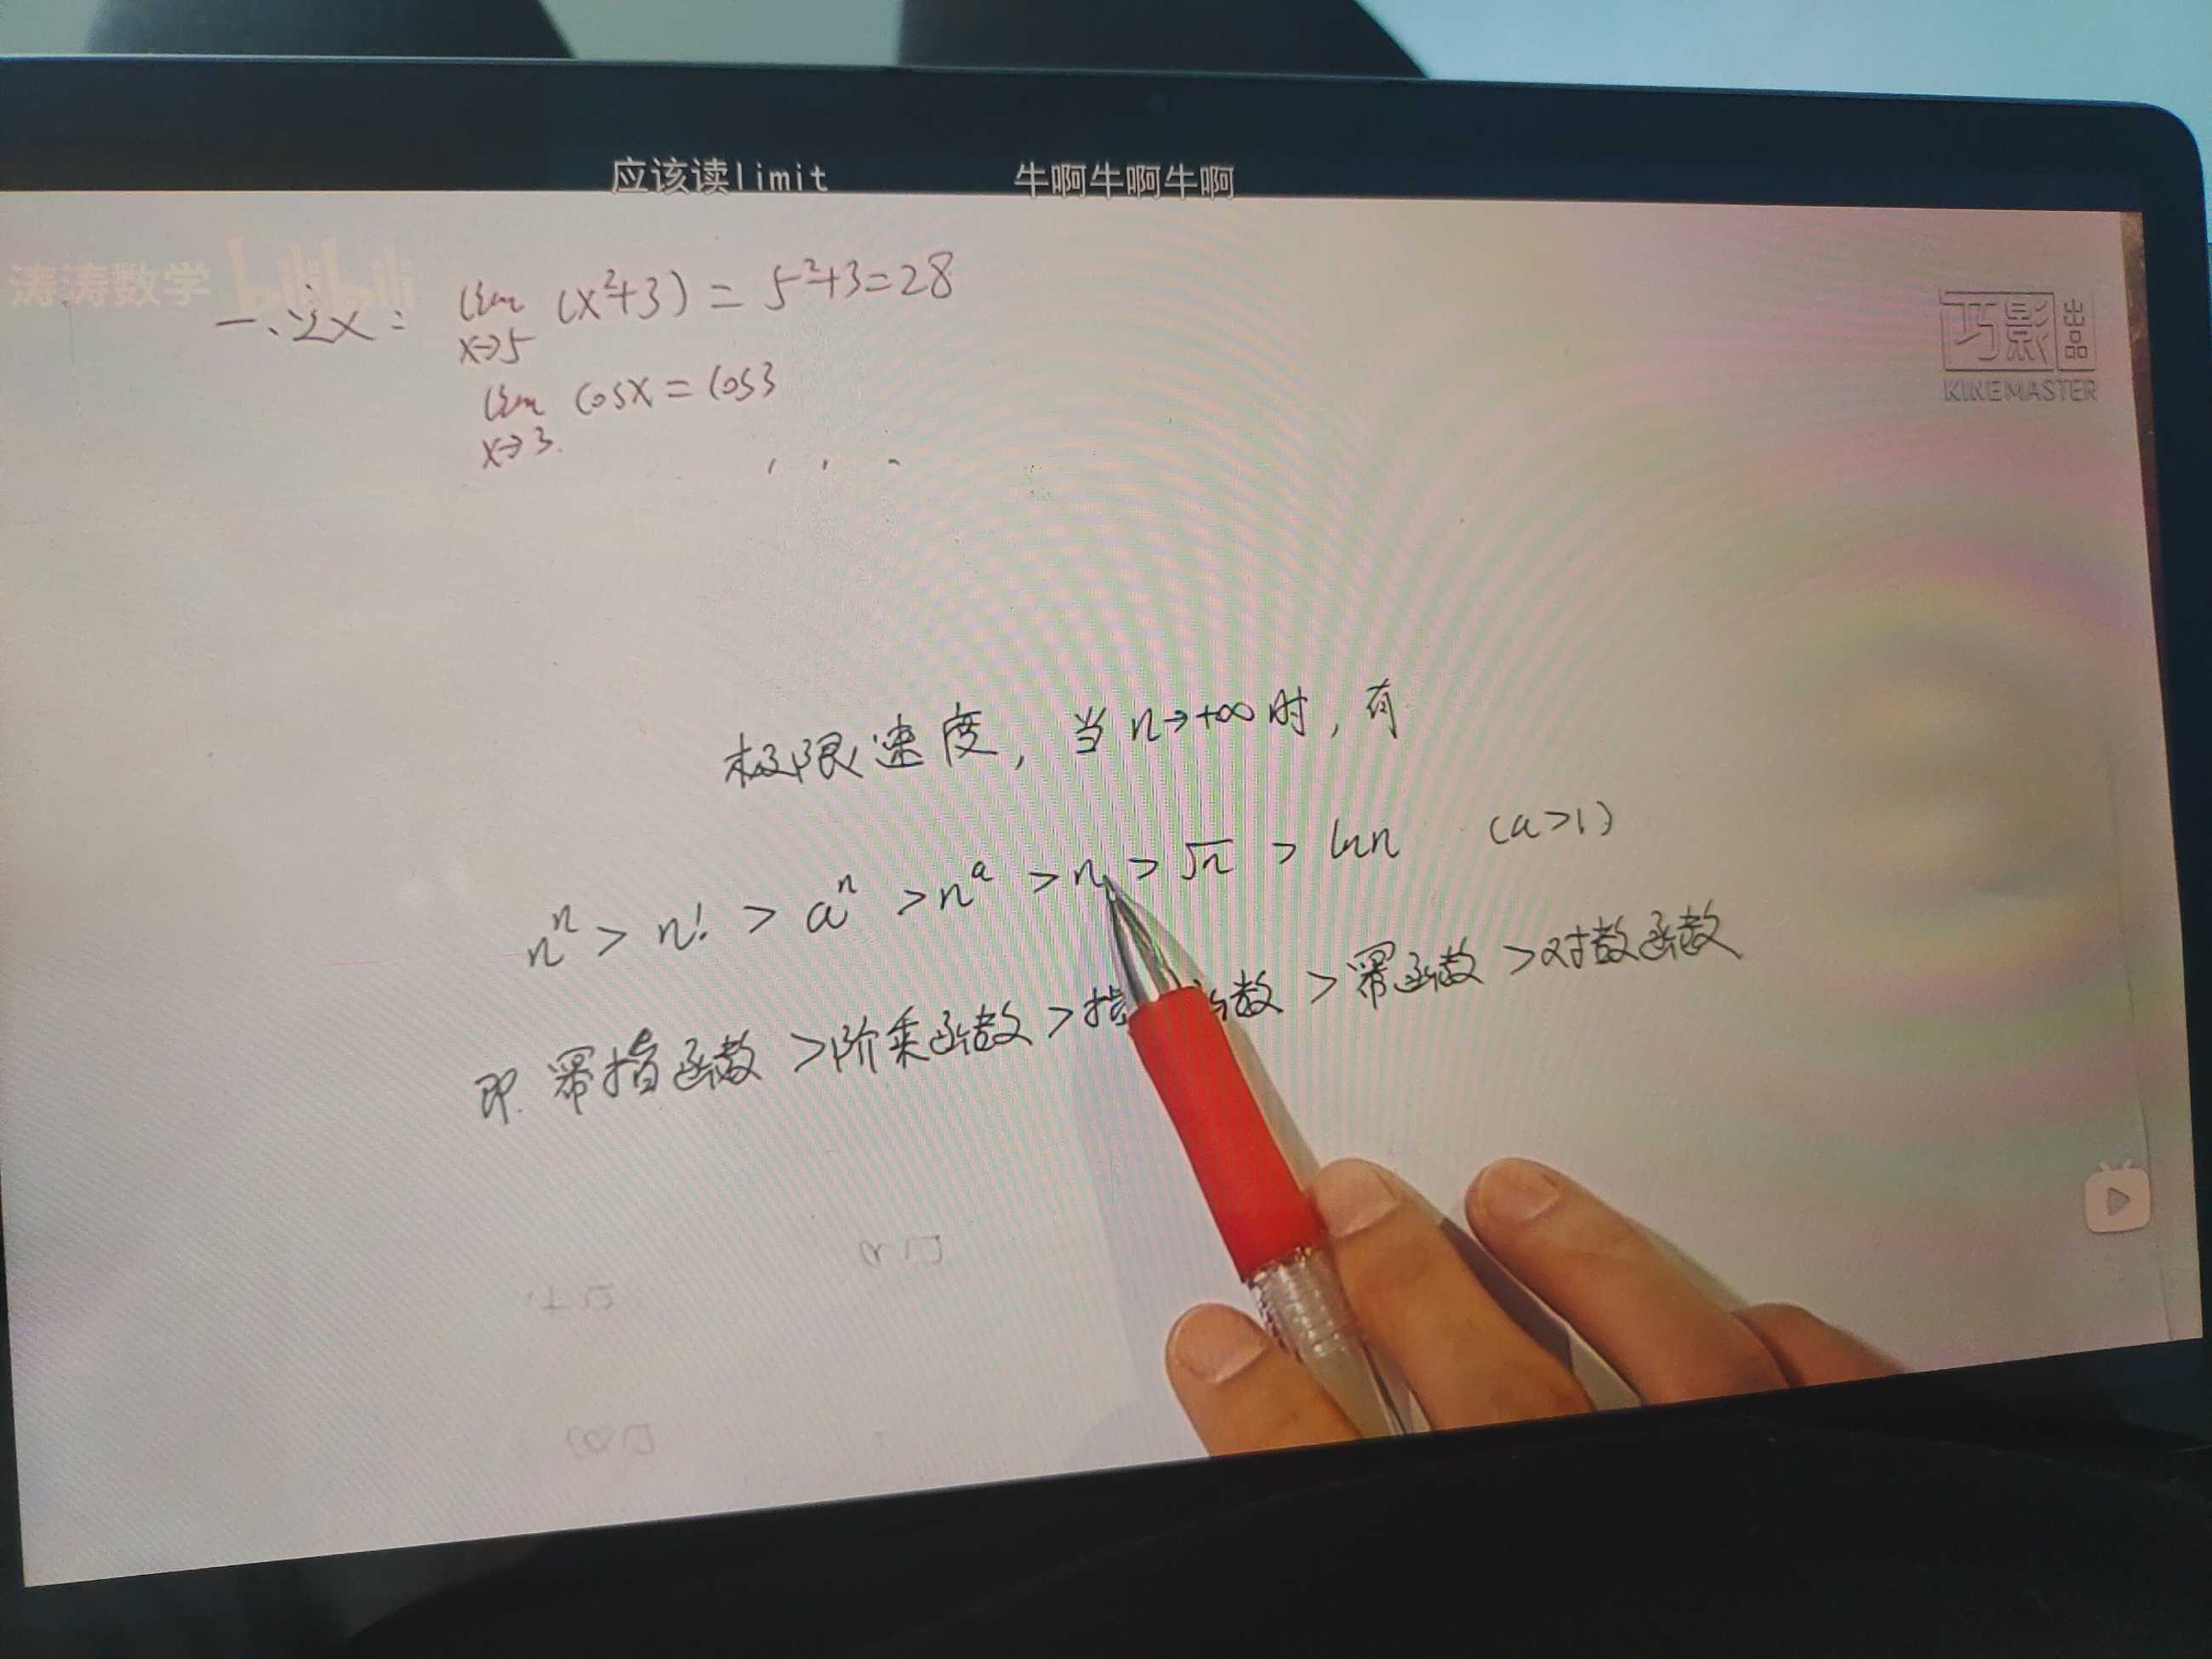 应该读limit 牛啊牛啊牛啊
涛涛数学 bilibili
一、定义: lim (x²+3) = 5²+3=28
x→5
lim cosx = cos3
x→3.
巧影出品
KINEMASTER
极限速度, 当n→+∞时, 有
nⁿ > n! > aⁿ > nᵃ > n > √n > lnn (a>1)
即. 幂指函数 >阶乘函数 >指 函数 > 幂函数 >对数函数